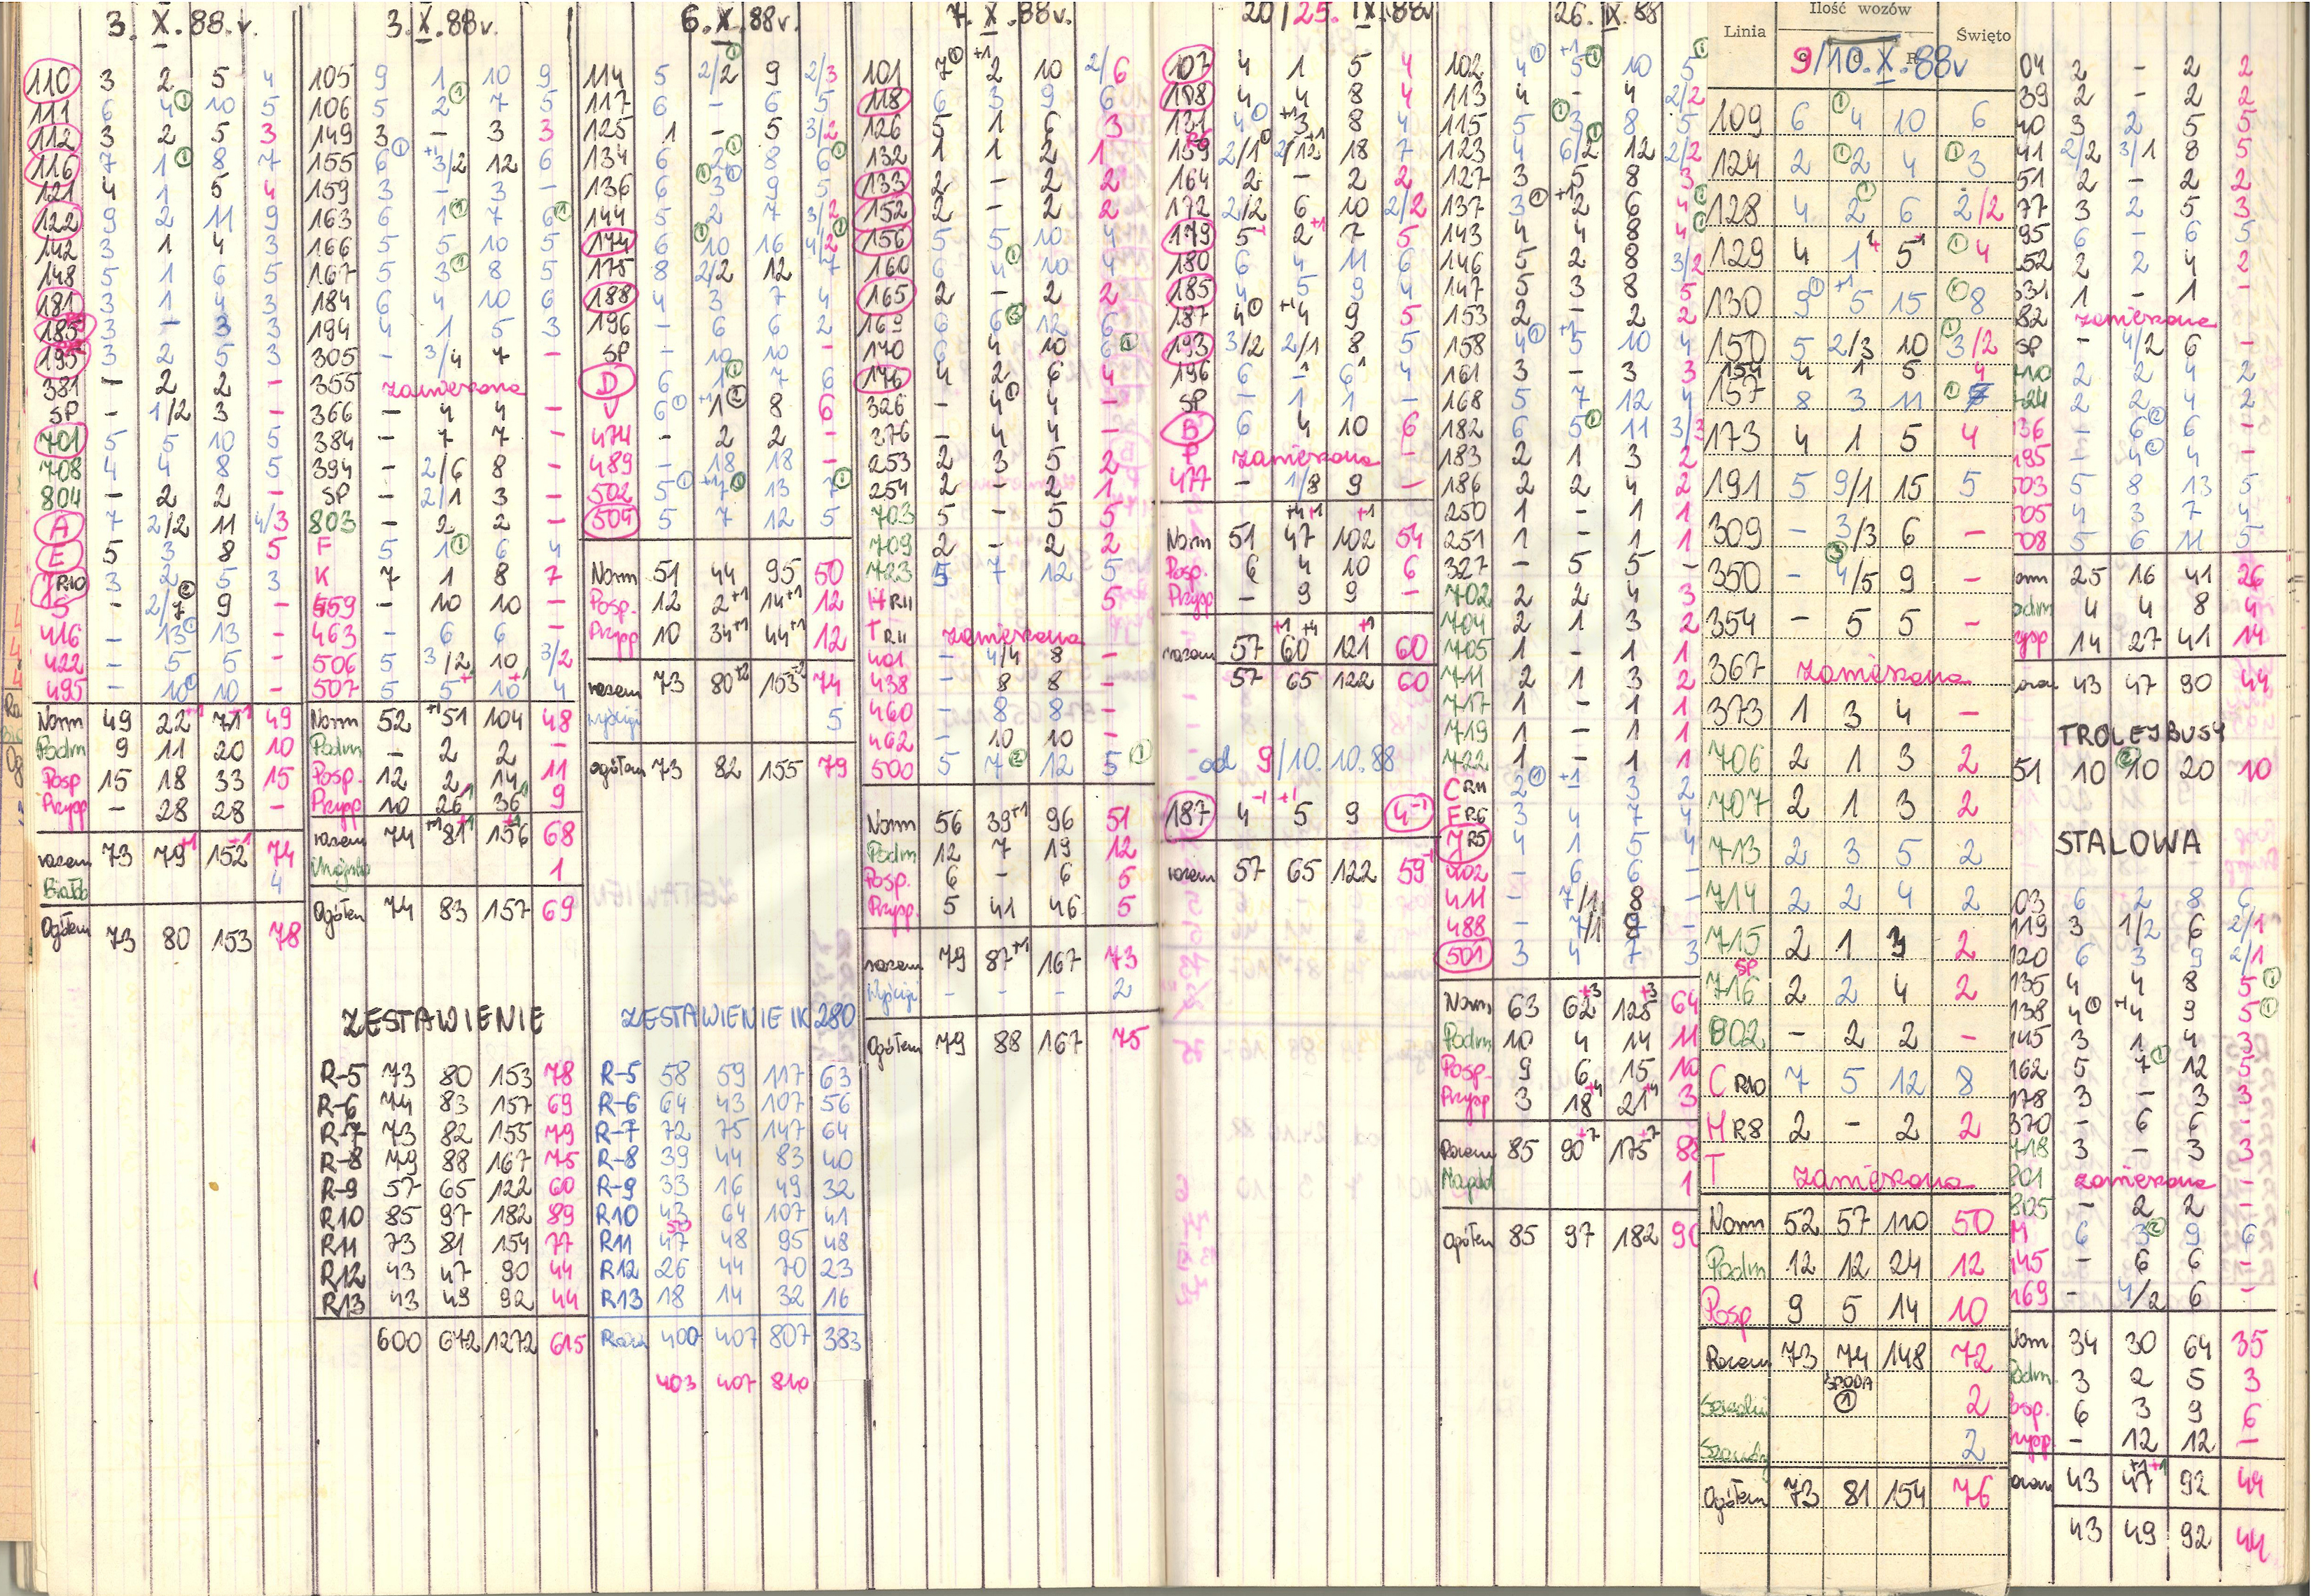 3. X. 88. v.
110 3 2 5 4
111 6 4 ① 10 5
112 3 2 5 3
116 7 1 ① 8 7
121 4 1 5 4
122 9 2 11 9
142 3 1 4 3
148 5 1 6 5
181 3 1 4 3
185 3 - 3 3
195 3 2 5 3
381 - 2 2 -
SP - 1/2 3 -
701 5 5 10 5
708 4 4 8 5
804 - 2 2 -
A 7 2/2 11 4/3
E 5 3 8 5
J R10 3 2 5 3
5 - 2/7 9 -
416 - 13 13 -
422 - 5 5 -
495 - 10 10 -
Norm 49 22 71 49
Podm 9 11 20 10
Posp 15 18 33 15
Przysp - 28 28 -
razem 73 79 +1 152 +1 74
4
Ogółem 73 80 153 78
3. X. 88 v.
105 9 1 10 9
106 5 2 ① 7 5
149 3 - 3 3
155 6 ① +1 3/2 12 6
159 3 - 3 -
163 6 1 ① 7 6 ①
166 5 5 10 5
167 5 3 ① 8 5
184 6 4 10 6
194 4 1 5 3
305 - 3/4 7 -
355 zawieszona
366 - 4 4 -
384 - 7 7 -
394 - 2/6 8 -
SP - 2/1 3 -
803 - 2 2 -
F 5 1 ① 6 4
K 7 1 8 7
459 - 10 10 -
463 - 6 6 -
506 5 3/2 10 3/2
507 5 5 10 4
Norm 52 +1 51 104 48
Podm - 2 2 -
Posp. 12 2 14 11
Przysp 10 26 36 9
razem 74 81 156 68
1
Ogółem 74 83 157 69
ZESTAWIENIE
R-5 73 80 153 78
R-6 74 83 157 69
R-7 73 82 155 79
R-8 79 88 167 75
R-9 57 65 122 60
R10 85 97 182 89
R11 73 81 154 77
R12 43 47 90 44
R13 43 49 92 44
600 672 1272 615
6. X. 88 v.
114 5 2/2 9 2/3
117 6 - 6 5
125 1 - 5 3/2
134 6 2 ① 8 6 ①
136 6 ① 3 ① 9 5
144 5 2 7 3/2
174 6 ① 10 16 4/2 ①
175 8 2/2 12 7
188 4 3 7 4
196 - 6 6 2
SP - 10 10 -
D 6 1 ① 7 6
U 6 ① +1 1 ① 8 6
474 - 2 2 -
489 - 18 18 -
502 5 ① +1 7 ① 13 7 ①
504 5 7 12 5
Norm 51 44 95 50
Posp. 12 2 +1 14 +1 12
Przysp 10 34 +1 44 +1 12
razem 73 80 +2 153 +2 74
wyścigi 5
ogółem 73 82 155 79
ZESTAWIENIE IK 280
R-5 58 59 117 63
R-6 64 43 107 56
R-7 72 75 147 64
R-8 39 44 83 40
R-9 33 16 49 32
R10 43 64 107 41
50
R11 47 48 95 48
R12 26 44 70 23
R13 18 14 32 16
Razem 400 407 807 383
403 407 810
7. X. 88 v.
101 7 ① +1 2 10 2/6
118 6 3 9 6
126 5 1 6 3
132 1 1 2 1
133 2 - 2 2
152 2 - 2 2
156 5 5 10 4
160 6 4 ① 10 4
165 2 - 2 2
169 6 6 ③ 12 6
170 6 4 10 6 ①
176 4 2 6 4
326 - 4 ① 4 -
276 - 4 4 -
253 2 3 5 2
254 2 - 2 1
703 5 - 5 5
709 2 - 2 2
723 5 7 12 5
H R11 5
T R11 zawieszona
401 - 4/4 8 -
438 - 8 8 -
460 - 8 8 -
462 - 10 10 -
500 5 7 ② 12 5 ①
Norm 56 39 +1 96 51
Podm 12 7 19 12
Posp. 6 - 6 5
Przysp. 5 41 46 5
razem 79 87 +1 167 73
Wyścigi - - - 2
Ogółem 79 88 167 75
20/25. IX. 88 v
107 4 1 5 4
108 4 4 8 4
131 4 ① +1 3 8 4
R6
139 2/1 ① 2/12 +1 18 7
164 2 - 2 2
172 2/2 6 10 2/2
179 5 2 +1 7 5
180 6 4 11 6
185 4 5 9 4
187 4 ① +1 4 9 5
193 3/2 2/1 8 5
196 6 - 6 4
SP - 1 1 -
B 6 4 10 6
P zawieszona -
477 - 1/8 9 -
Norm 51 47 102 54
Posp. 6 4 10 6
Przysp - 9 9 -
razem 57 60 121 60
57 65 122 60
od 9/10. 10. 88
187 4 -1 +1 5 9 4 -1
razem 57 65 122 59
26. IX. 88
102 4 ① +1 5 ① 10 5 ①
113 4 - 4 2/2
115 5 ① 3 8 5
123 4 6/2 ① 12 2/2
127 3 5 8 3
137 3 ① +1 2 6 4
143 4 4 8 4
146 5 2 8 3/2
147 5 3 8 5
153 2 - 2 2
158 4 ① +1 5 10 4
161 3 - 3 3
168 5 7 12 4
182 6 5 ① 11 3/3
183 2 1 3 2
186 2 2 4 2
250 1 - 1 1
251 1 - 1 1
327 - 5 5 -
702 2 2 4 3
704 2 1 3 2
705 1 - 1 1
711 2 1 3 2
717 1 - 1 1
719 1 - 1 1
722 1 - 1 1
C R11 2 ① +1 3 2
F R6 3 4 7 4
J R5 4 1 5 4
402 - 6 6 -
411 - 7/1 8 -
488 - 7/1 8 -
501 3 4 7 3
Norm 63 62 +3 125 +3 64
Podm 10 4 14 11
Posp. 9 6 15 10
Przysp 3 18 +4 21 +4 3
Razem 85 90 +7 175 +7 88
1
ogółem 85 97 182 90
Linia Ilość wozów Święto
9/10. X. 88 v
109 6 ① 4 10 6
124 2 ① 2 4 ① 3
128 4 2 ① 6 2/2
129 4 1 5 ① 4
130 9 ① +1 5 15 ① 8
150 5 2/3 10 ① 3/2
154 4 1 5 4
157 8 3 11 ①
173 4 1 5 4
191 5 9/1 15 5
309 - 3/3 6 -
350 - 4/5 9 -
354 - 5 5 -
367 zawieszona
373 1 3 4 -
706 2 1 3 2
707 2 1 3 2
713 2 3 5 2
714 2 2 4 2
715 2 1 3 2
SP
716 2 2 4 2
802 - 2 2 -
C R10 7 5 12 8
H R8 2 - 2 2
T zawieszona
Norm 52 57 110 50
Podm 12 12 24 12
Posp 9 5 14 10
Razem 73 74 148 72
ŚRODA
① 2
2
Ogółem 73 81 154 76
04 2 - 2 2
39 2 - 2 2
40 3 2 5 5
41 2/2 3/1 8 5
51 2 - 2 2
77 3 2 5 3
95 6 - 6 5
252 2 2 4 2
331 1 - 1 -
82 zawieszona
SP - 4/2 6 -
710 2 2 4 2
724 2 2 4 2
36 - 6 ② 6 -
495 - 4 ① 4 -
503 5 8 13 5
505 4 3 7 4
508 5 6 11 5
orm 25 16 41 26
odm 4 4 8 4
ysp 14 27 41 14
razem 43 47 90 44
TROLEJBUSY
51 10 10 ② 20 10
STALOWA
103 6 2 8 6
119 3 1/2 6 2/1
120 6 3 9 2/1
135 4 4 8 5 ①
138 4 ① +1 4 9 5 ①
145 3 1 4 3
162 5 7 ① 12 5
178 3 - 3 3
370 - 6 6 -
718 3 - 3 3
801 zawieszona -
805 - 2 2 -
M 6 3 ② 9 6
445 - 6 6 -
469 - 4/2 6 -
Norm 34 30 64 35
Podm 3 2 5 3
Posp. 6 3 9 6
rzysp - 12 12 -
razem 43 47 +1 +1 92 44
43 49 92 44